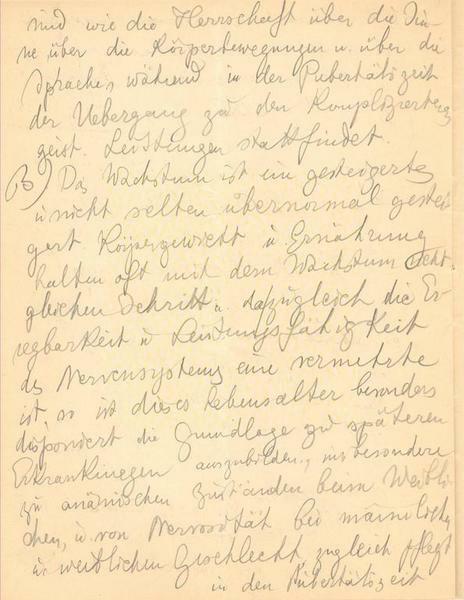 sind wie die Herrschaft über die Sin-
ne über die Körperbewegungen u. über die
Sprache, während in der Pubertätszeit
der Uebergang zu den Komplizierten
geist. Leistungen stattfindet.
B) Das Wachstum ist ein gesteigertes
u nicht selten übernormal gestei
gert. Körpergewicht u Ernährung
halten oft mit dem Wachstum
gleichen Schritt u. da zugleich die Er
regbarkeit u Leistungsfähigkeit
des Nervensystems eine vermehrte
ist, so ist dieses Lebensalter besonders
disponiert die Grundlage zu späteren
Erkrankungen auszubilden, insbesondere
zu anämischen Zuständen beim Weibli
chen, u. von Nervosität bei männlichen
u. weiblichen Geschlecht, zugleich pflegt
in den Pubertätszeit